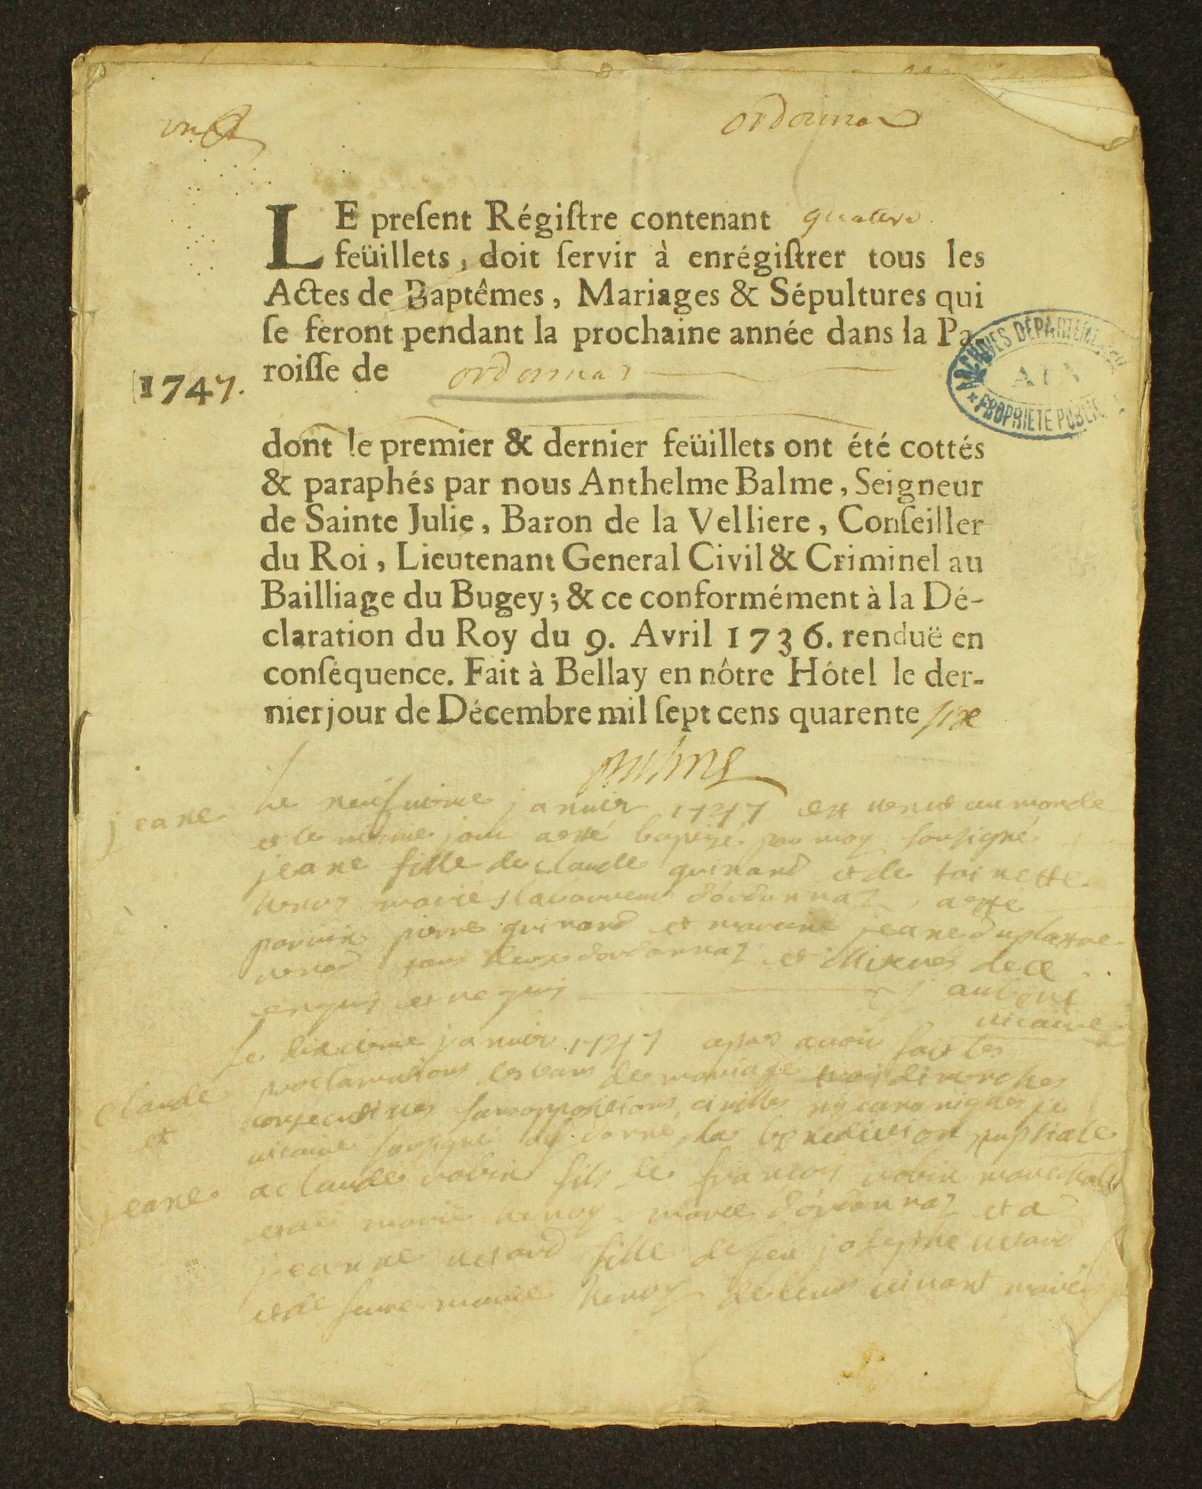 ordonnaz
LE preſent Régiſtre contenant quatre
feüillets, doit ſervir à enrégiſtrer tous les
Actes de Baptêmes, Mariages & Sépultures qui
ſe feront pendant la prochaine année dans la Pa-
roiſſe de ordonnaz
1747.
ARCHIVES DÉPARTEMENTALES
AIN
PROPRIETE PUBLIQUE
dont le premier & dernier feüillets ont été cottés
& paraphés par nous Anthelme Balme, Seigneur
de Sainte Julie, Baron de la Velliere, Conſeiller
du Roi, Lieutenant General Civil & Criminel au
Bailliage du Bugey; & ce conformément à la Dé-
claration du Roy du 9. Avril 1736. renduë en
conſéquence. Fait à Bellay en nôtre Hôtel le der-
nier jour de Décembre mil ſept cens quarente ſix
Balme
jeane
Le neufvieme janvier 1747 est venue au monde
et le meme jour a esté baptizé par moy sousigné
jeane fille de claude guinard et de toinette
mariés d'ordonnaz a esté
parain pierre guinard et maraine jeane
tous deux d'ordonnaz et illiteres de ce
enquis et requis
vicaire
Le dixieme janvier 1747 apres avoir fait les
claude
proclamations des bans de mariage trois dimanches
et
consecutives sans oppositions civilles ny canoniques je
vicaire sousigné ay donné la benediction nuptiale
jeane
a claude robin fils de françois robin
et de marie d'ordonnaz et a
jeanne fille de feu josephe
et de marie